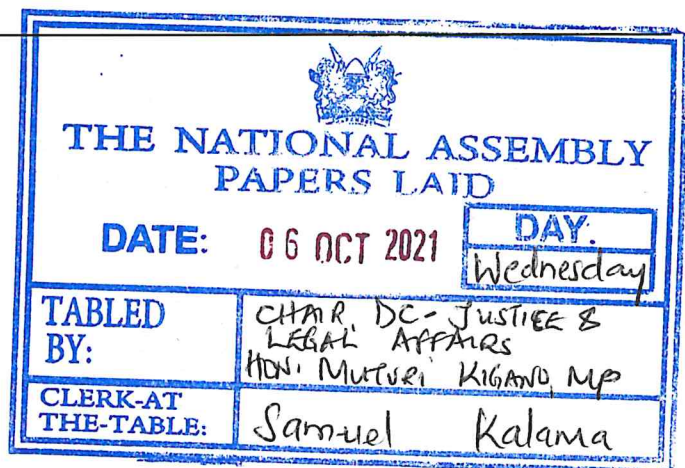 THE NATIONAL ASSEMBLY
PAPERS LAID
DATE: 06 OCT 2021
DAY:
Wednesday
TABLED
BY:
CHAIR, DC- JUSTICE &
LEGAL AFFAIRS
HON. MUTURI KIGANO, MP
CLERK-AT
THE-TABLE:
Samuel Kalama